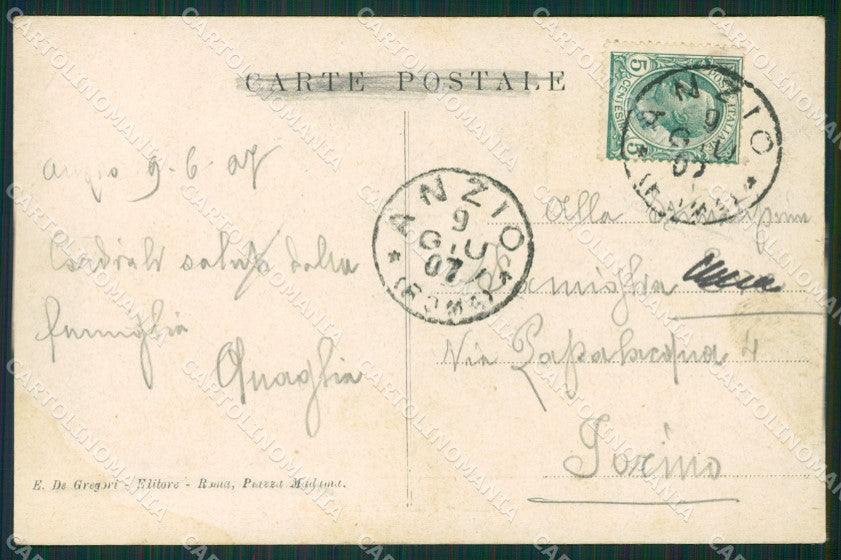 CARTE POSTALE
POSTE ITALIANE
5 CENTESIMI 5
ANZIO
9
GIU
07
(ROMA)
Anzio 9-6-07
Cordiali saluti dalla
famiglia
Quaglia
ANZIO
9
GIU
07
(ROMA)
Alla
Famiglia
Via Papalacqua 4
Torino
E. De Gregori - Editore - Roma, Piazza Madama.
CARTOLINOMANIA